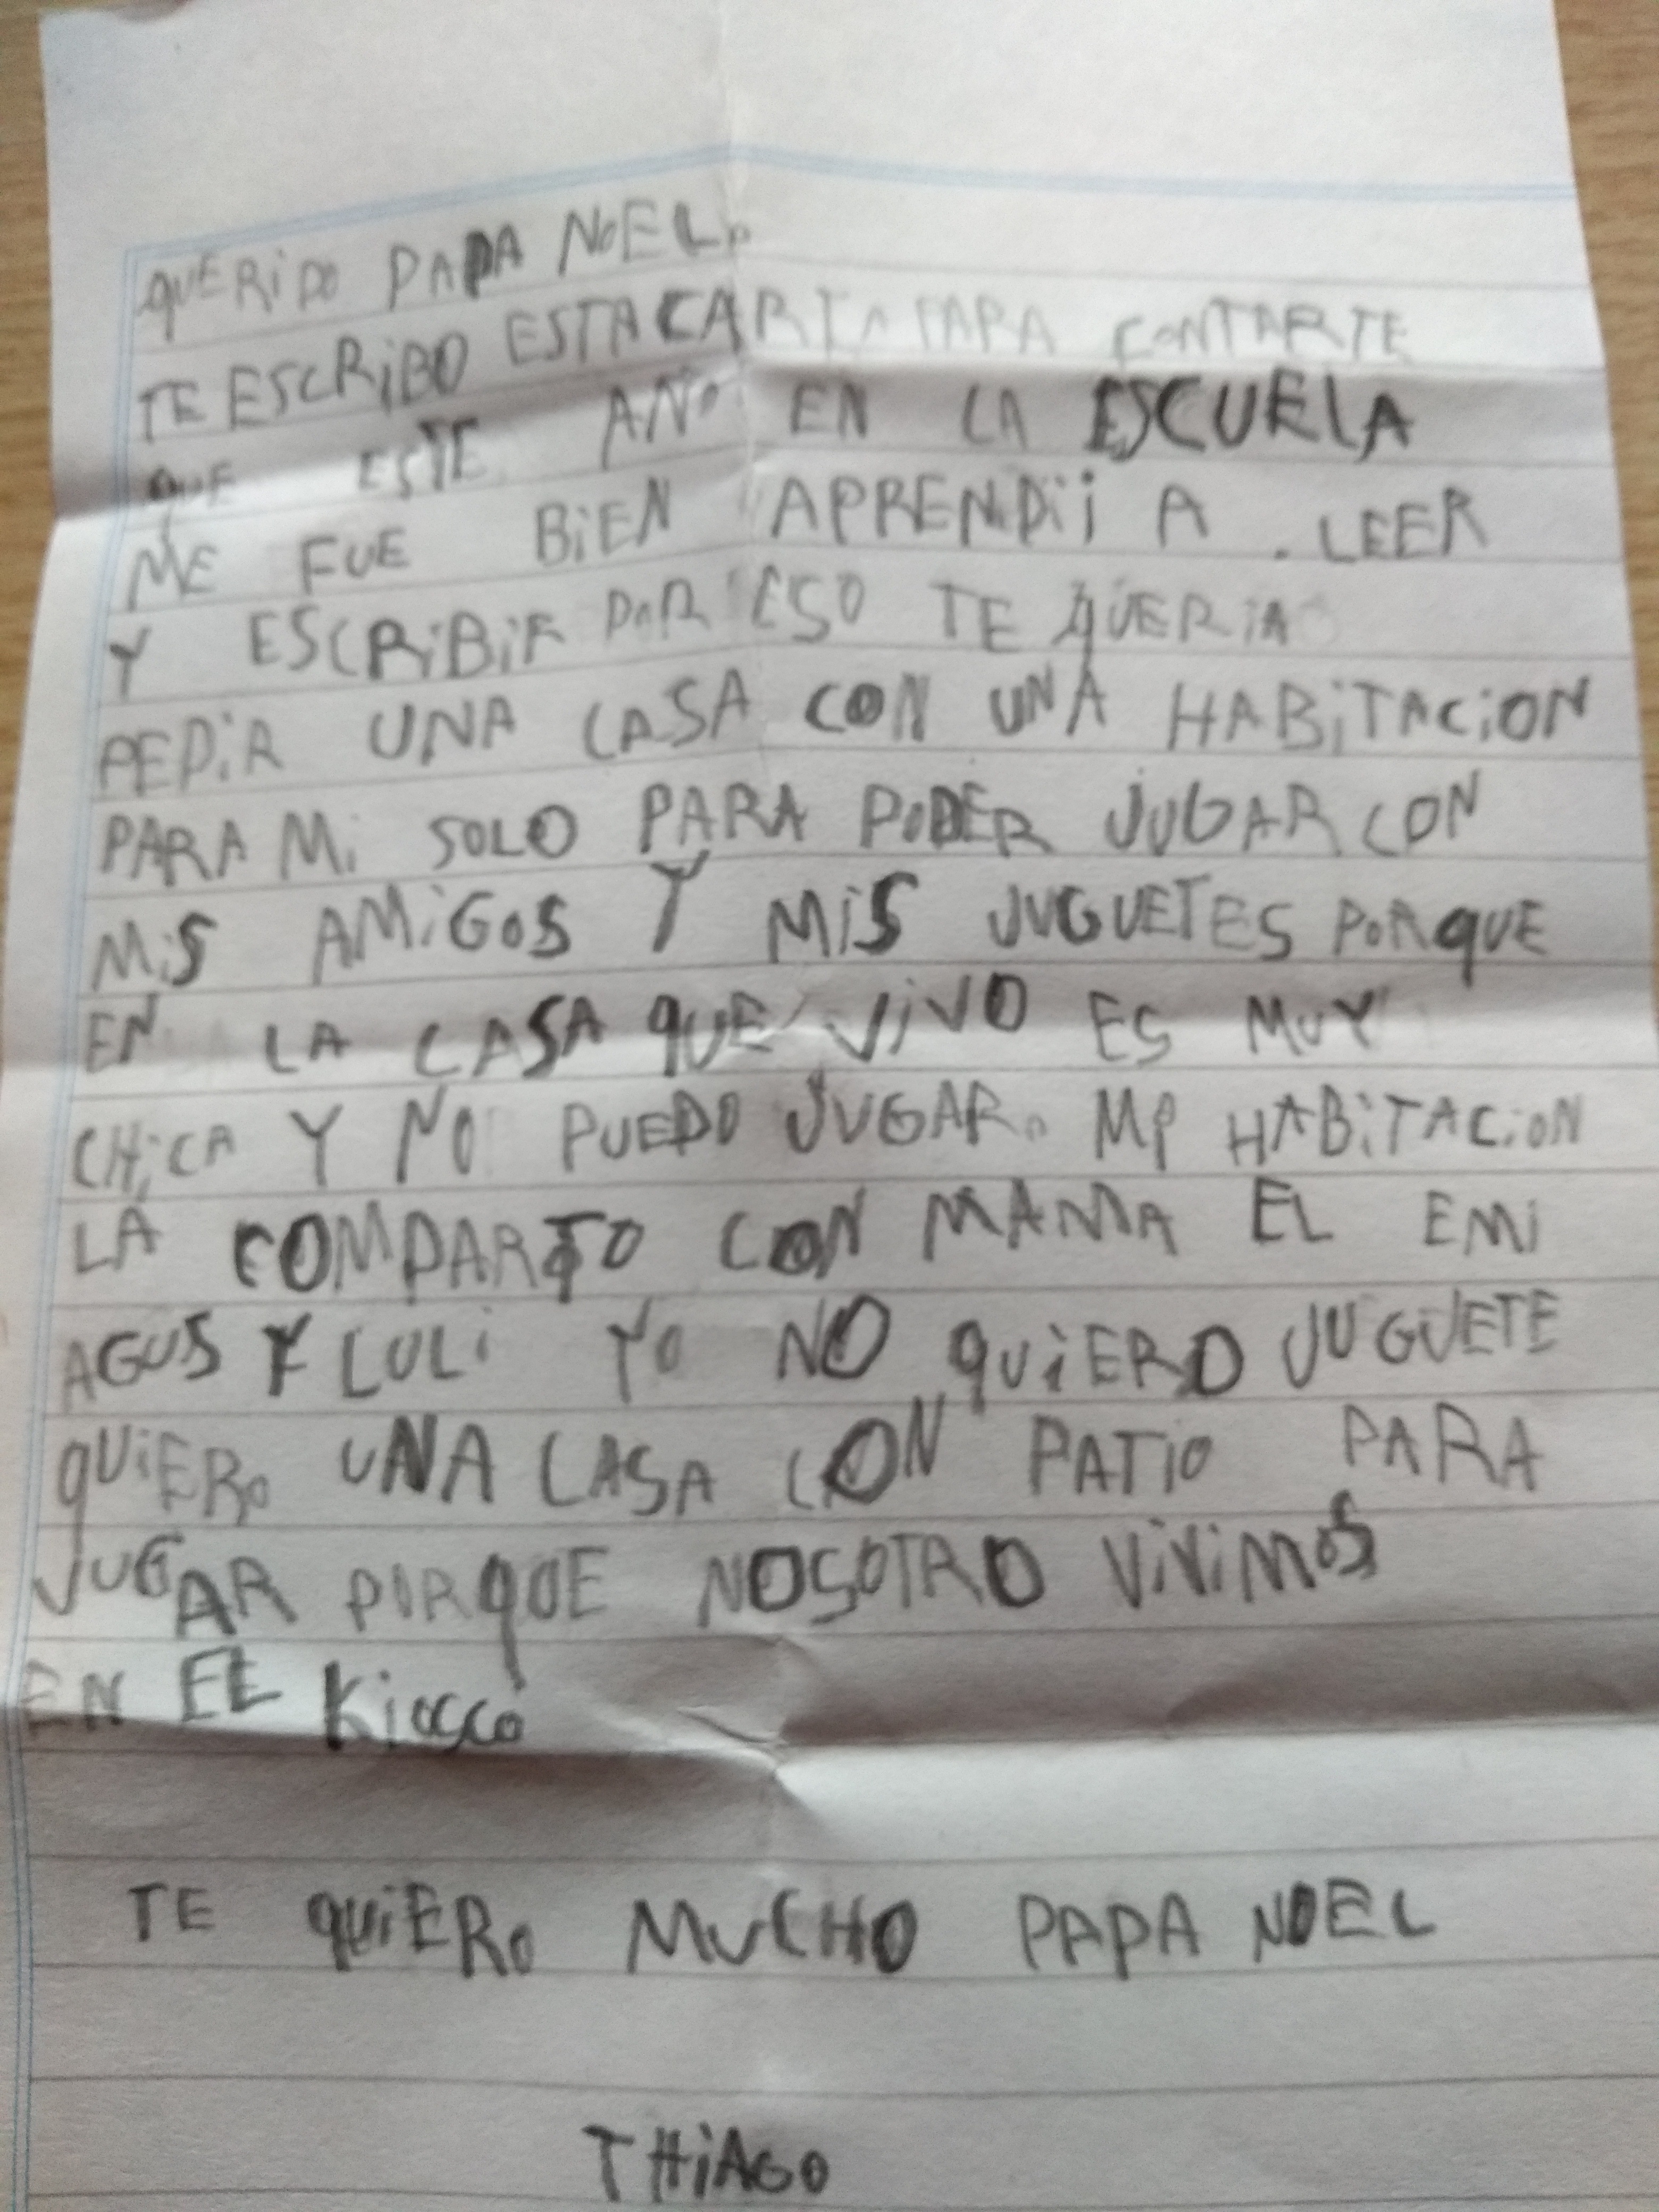 QUERiDO PAPA NoEL.
TE ESCRiBO ESTA CARTA PARA CONTARTE
QUE ESTE AÑO EN LA ESCUELA
ME FUE BiEN APRENDii A LEER
Y ESCRiBiR PoR ESO TE QUERiA
PEDiR UNA CASA CON UNA HABiTACiON
PARA Mi SOLO PARA PoDER JUGAR CON
MiS AMiGOS Y MiS JUGUETES PoRqUE
EN LA CASA qUE ViVO ES MUY
CHiCA Y NO PUEDO JUGAR. Mi HABiTACiON
LA COMPARTO CON MAMA EL EMi
AGUS Y LULi YO NO qUiERO JUGUETE
qUiERo UNA CASA CON PATiO PARA
JUGAR PORqUE NOSOTRO ViViMOS
EN EL Kiosco
TE qUiERo MUCHO PAPA NOEL
THiAGO